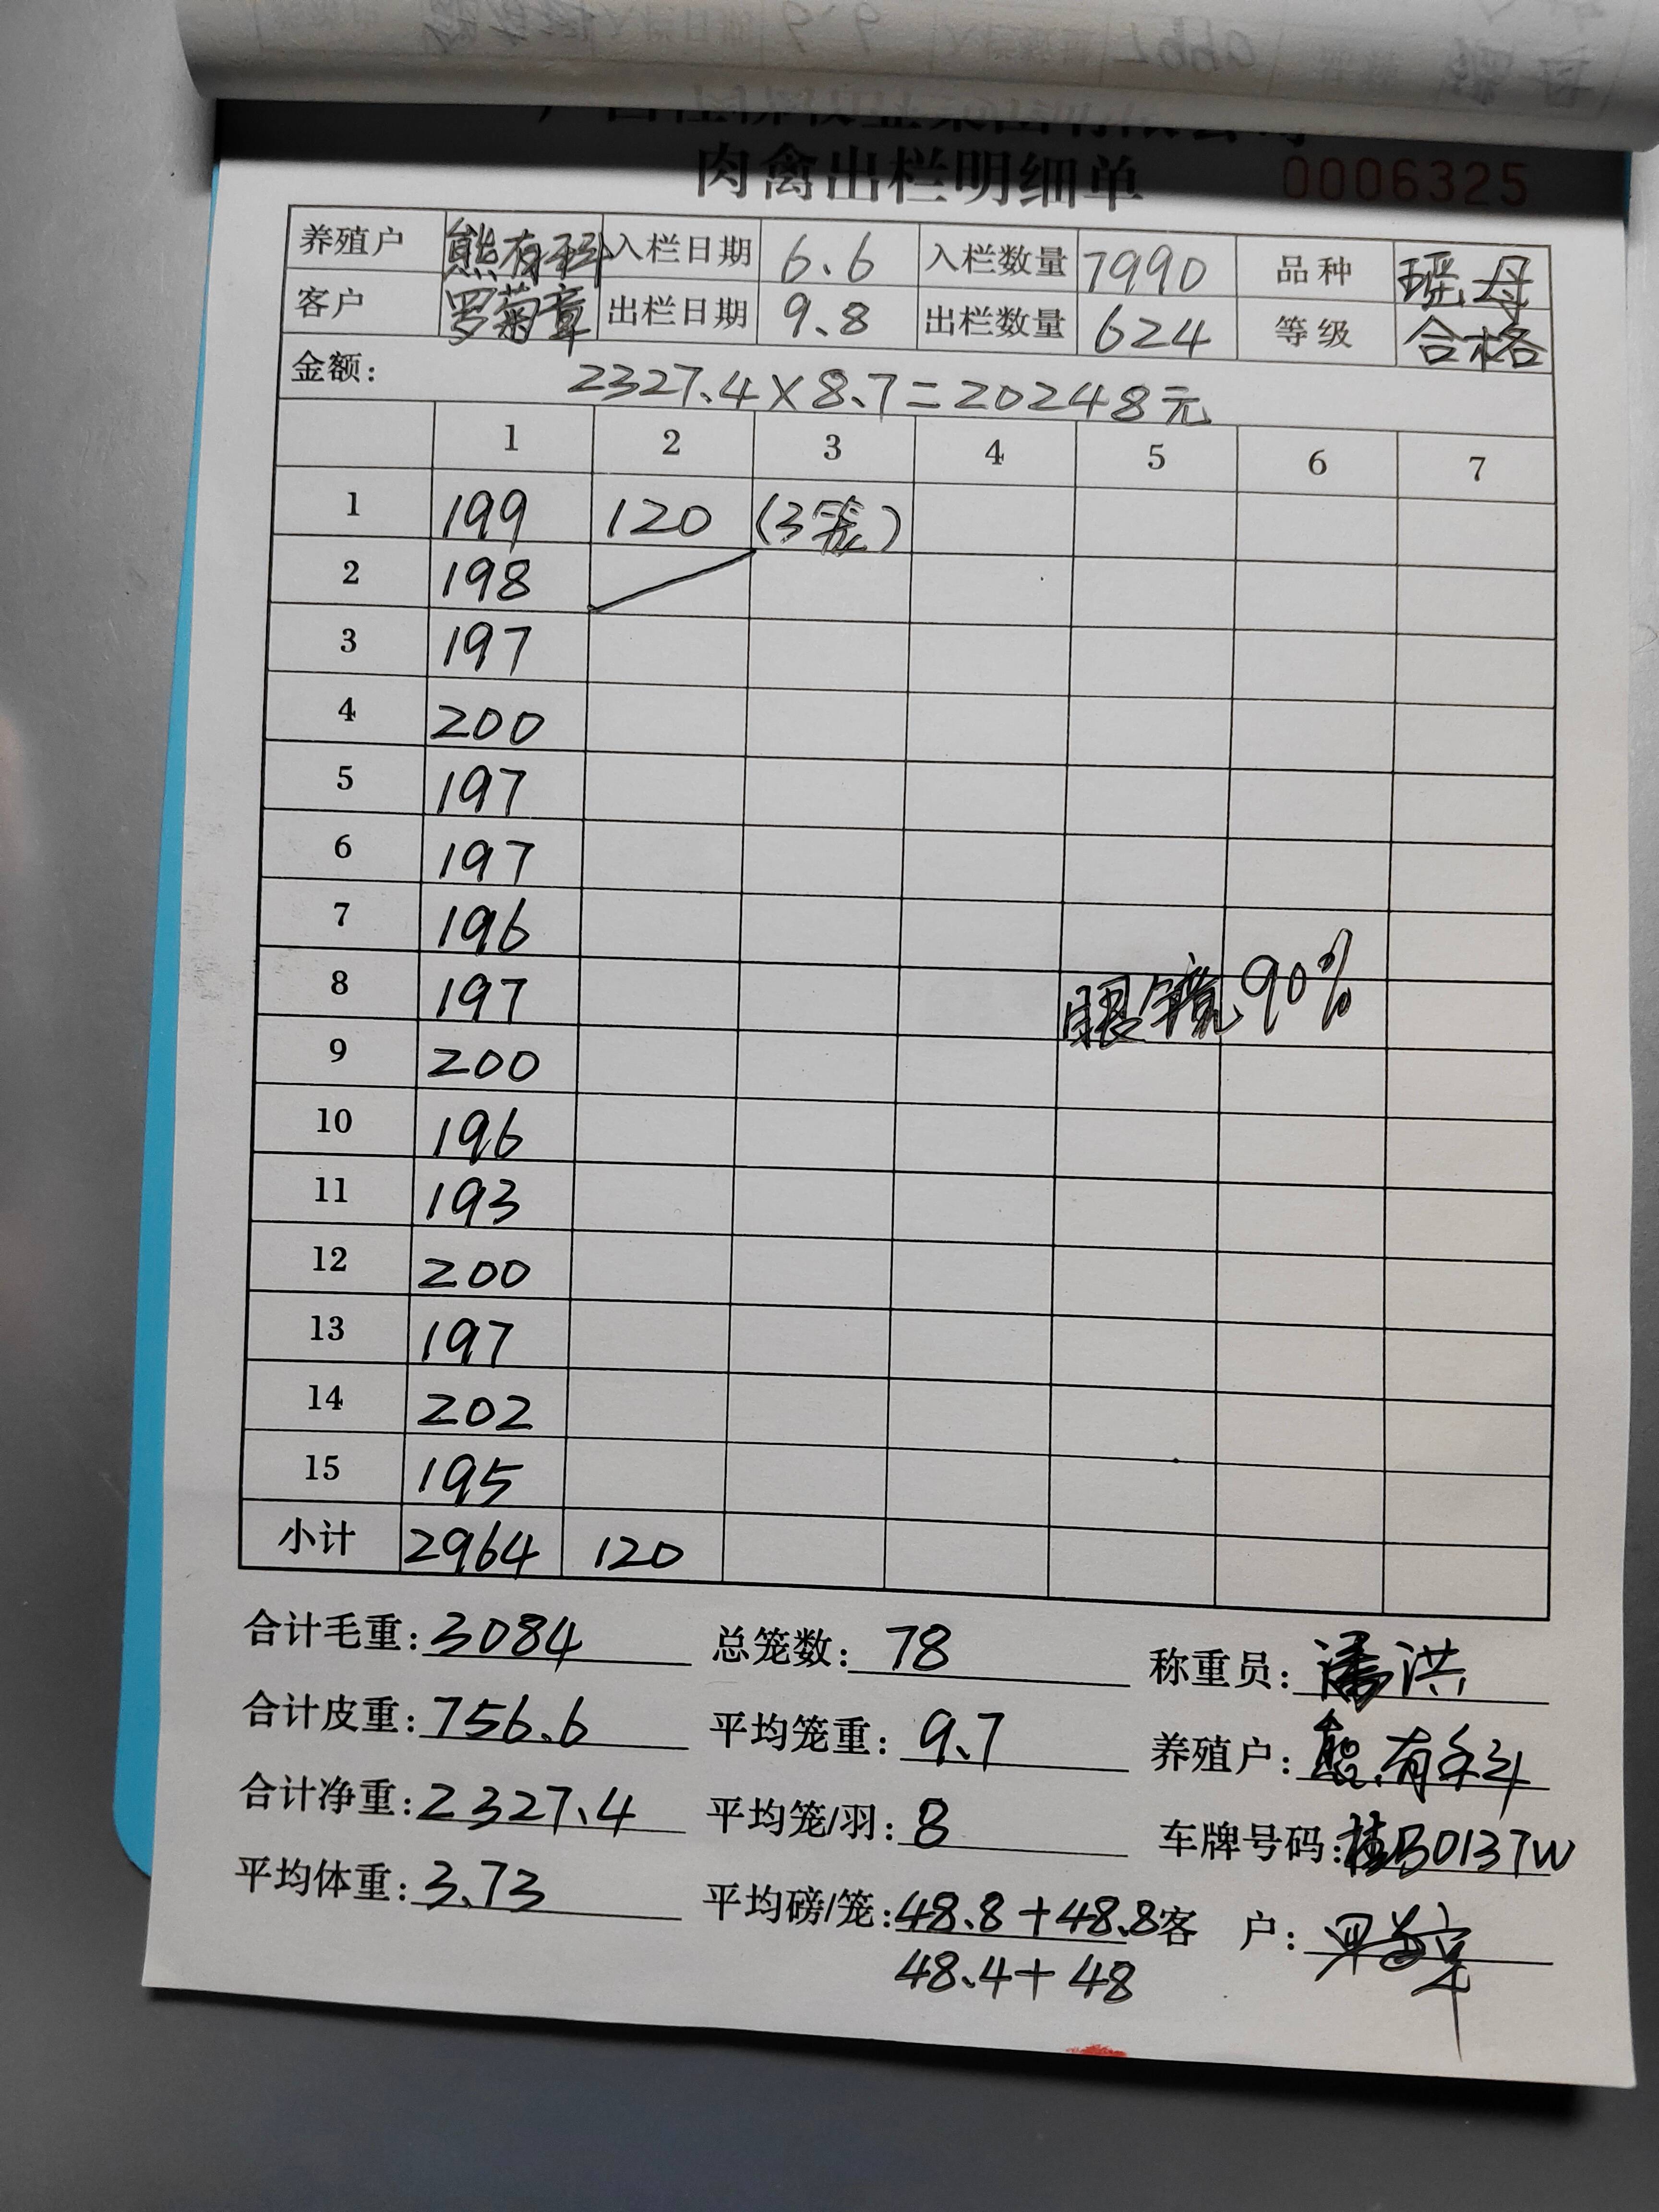 肉禽出栏明细单 0006325
养殖户 熊有科 入栏日期 6.6 入栏数量 7990 品种 瑶母
客户 罗菊章 出栏日期 9.8 出栏数量 624 等级 合格
金额: 2327.4×8.7=20248元
1 2 3 4 5 6 7
1 199 120 (3笼)
2 198
3 197
4 200
5 197
6 197
7 196
8 197 眼镜90%
9 200
10 196
11 193
12 200
13 197
14 202
15 195
小计 2964 120
合计毛重: 3084 总笼数: 78 称重员: 潘洪
合计皮重: 756.6 平均笼重: 9.7 养殖户: 熊有科
合计净重: 2327.4 平均笼/羽: 8 车牌号码: 桂B0137W
平均体重: 3.73 平均磅/笼: 48.8+48.8 客 户:
48.4+48